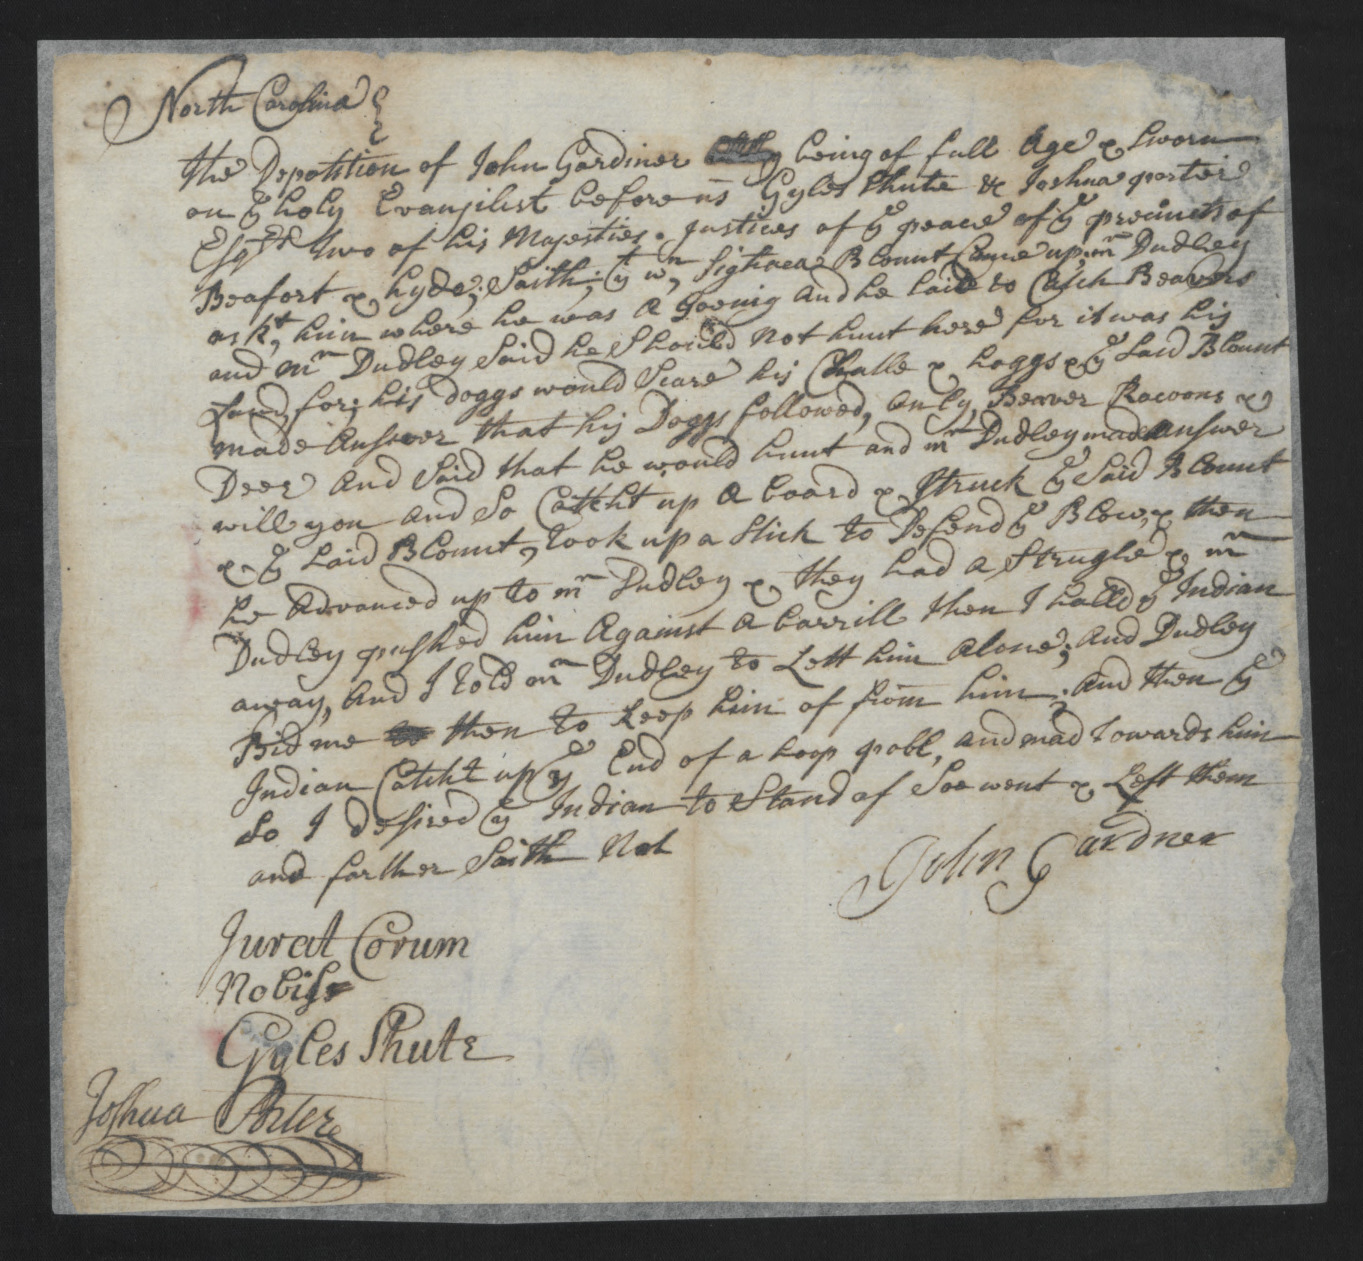 North Carolina
The Depotition of John Gardiner being of full Age & Sworn
on ye holy Evanjilist before us Gyles Shute & Joshua porter
Esqrs two of his Majesties Justices of ye peace of ye precincts of
Beafort & hyde; Saith; yt wn Blount Came up, mr Dudley
askt, him where he was a Goeing And he Said to Catch Beavers
and mr Dudley Said he Should Not hunt here for it was his
Land, for; his Doggs would Scare his Chatle & hoggs & ye Said Blount
made Answer that his Doggs followed, only, Beaver Racoons &
Deer And Said that he would hunt and mr Dudley made Answer
will you and So Catcht up a board & Struck ye Said Blount
& ye Said Blount, took up a Stick to Defend ye Blow, & then
he Advanced up to mr Dudley & they had a Strugle & mr
Dudley pushed him Against a barrill then I halld ye Indian
away, And I told mr Dudley to Lett him alone; And Dudley
Bid me then to keep him of from him; And then ye
Indian Catcht up ye End of a hoop poll, and mad towards him
So I desired ye Indian to Stand of Soe went & Left them
and farther Saith Not
John Gardner
Jurat Corum
Nobiss
Gyles Shute
Joshua Porter